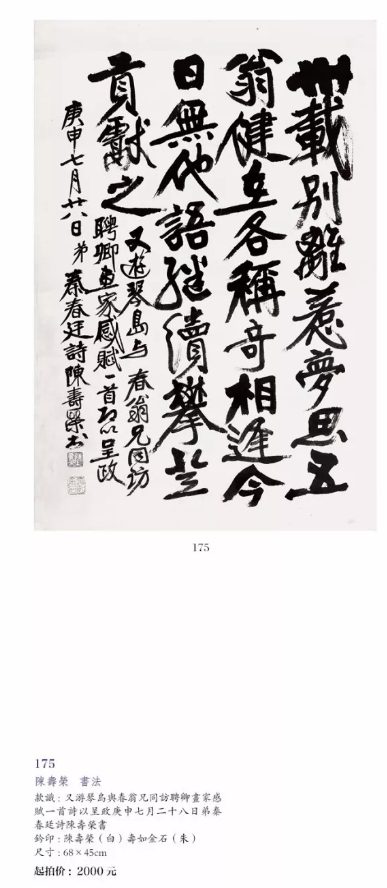 卅載別離惹夢思五
翁健在各稱奇相逢今
日無他語继續攀登
貢獻之
又遊琴島与春翁兄同坊
聘卿画家感賦一首即以呈政
庚申七月廿八日弟秦春廷詩陳壽榮书
175
175
陳壽榮 書法
款識：又游琴島與春翁兄同訪聘卿畫家感
賦一首詩以呈政庚申七月二十八日弟秦
春廷詩陳壽榮書
鈐印：陳壽榮（白）壽如金石（朱）
尺寸：68×45cm
起拍價：2000 元